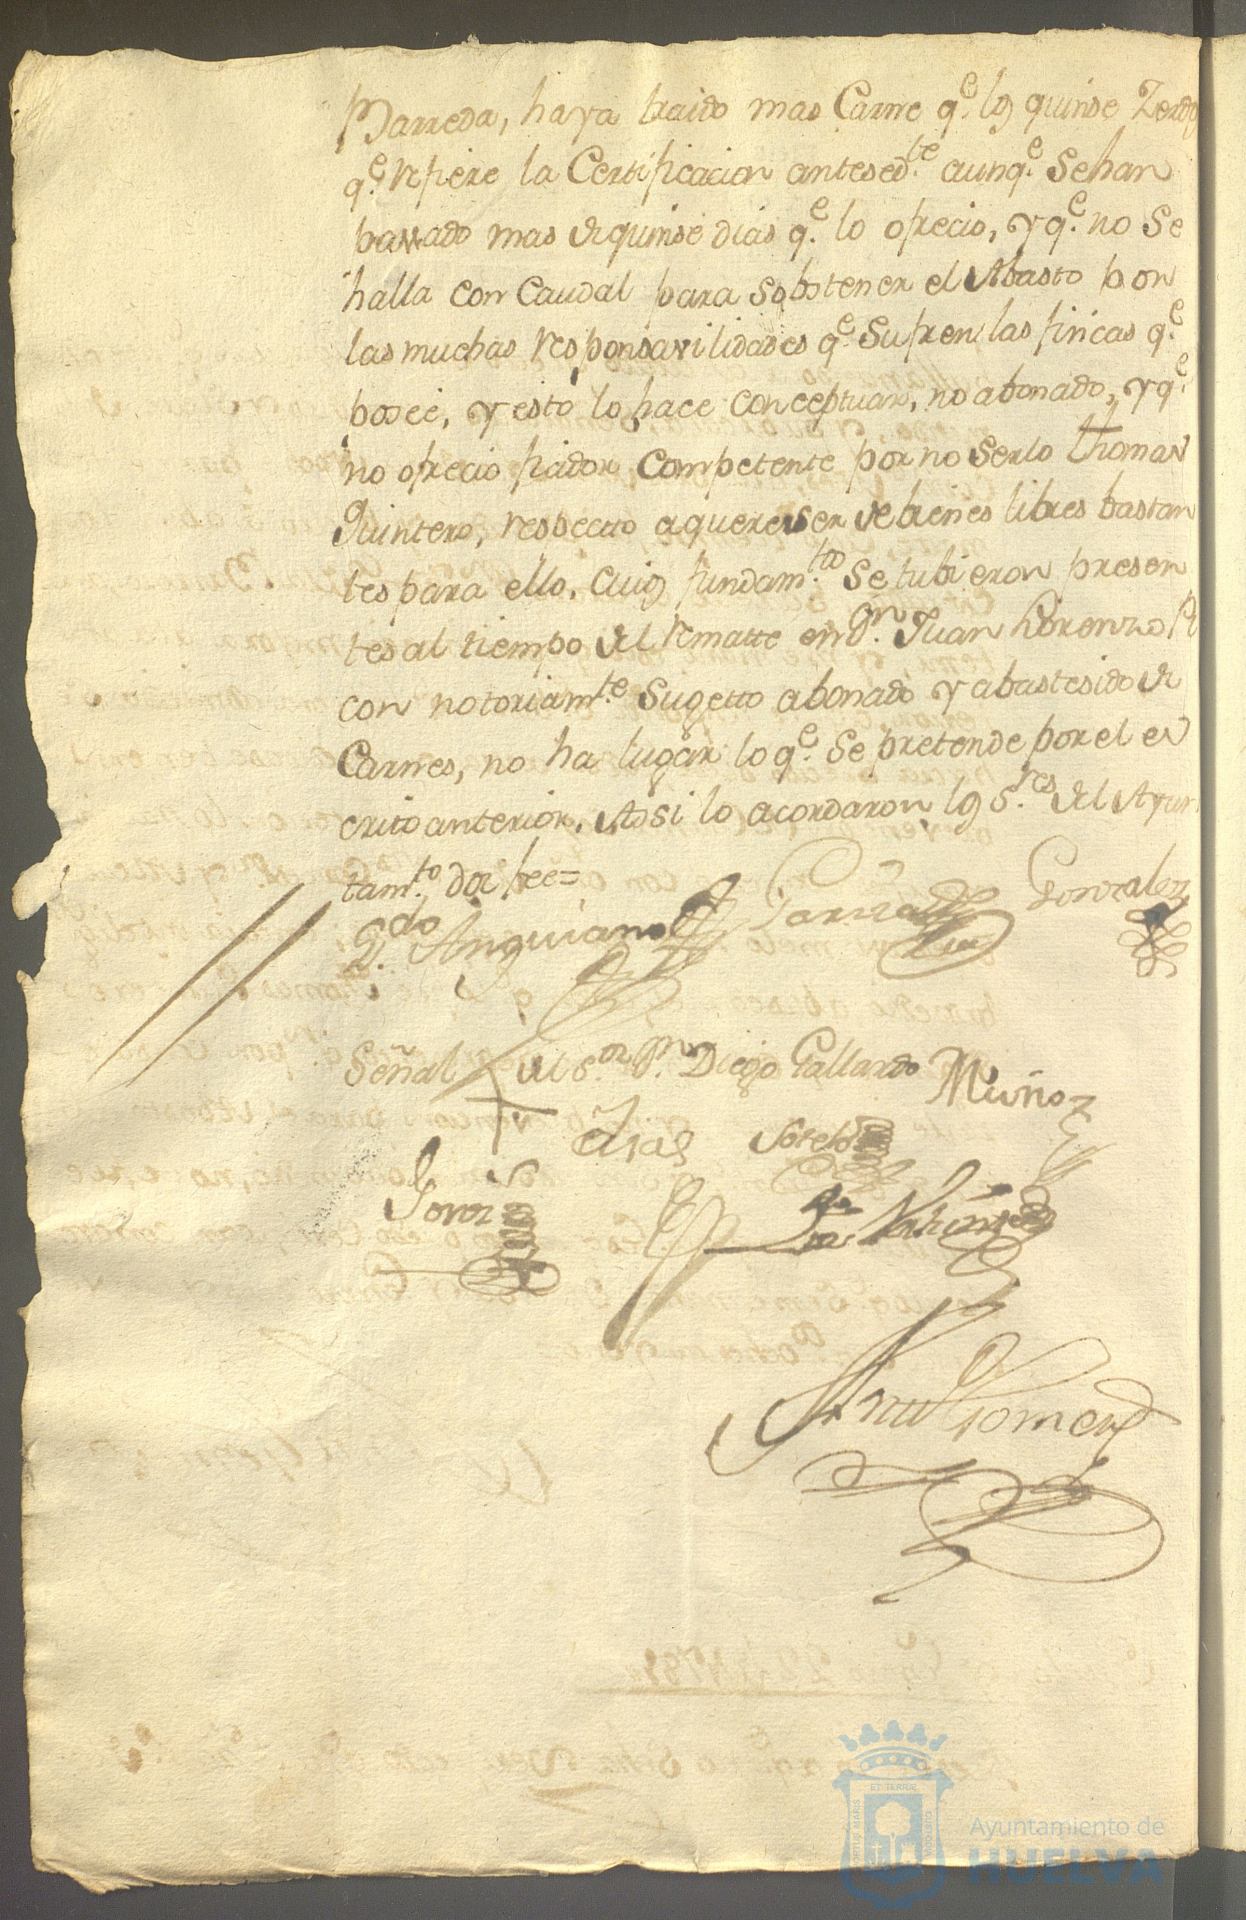 Barreda, haya traido mas Carne q.e los quinse Zerdo
q.e refiere la Certificacion antesed.te aunq.e Sehan
passado mas de quinse dias q.e lo ofrecio, y q.e no Se
halla con Caudal para Sobstener el Abasto por
las muchas responsavilidades q.e Sufren las fincas q.e
poseé, y esto lo hace conceptuar, no abonado, y q.e
no ofrecio fiador competente por no Serlo thomas
Quintero, respecto a querer ser de bienes libres bastan
tes para ello. Cuios fundam.tos Se tubieron presen
tes al tiempo del rematte en D.n Juan Lorenzo R
con notoriam.te Sugetto abonado y abastesido de
Carnes, no ha lugar lo q.e Se pretende por el es
crito anterior. Assi lo acordaron los S.res del Ayun
tam.to doi fee=
L.do Anguiano Garrido Gonzalez
Señal del S.or D.n Diego Gallardo Muñoz
Dias Sotelo
Martinez
ET TERRÆ
Ayuntamiento de
HUELVA